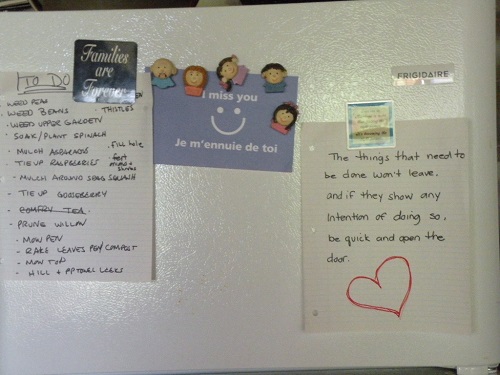 TO DO
Families
are
Forever
- WEED PEAS
- WEED BEANS
THISTLES
- WEED UPPER GARDEN
- SOAK/PLANT SPINACH
- MULCH ASPARAGUS
- fill hole
- TIE UP RASPBERRIES
- MULCH AROUND SQUASH
- TIE UP GOOSEBERRY
- COMFRY TEA.
- PRUNE WILLOW
- MOW PEN
- RAKE LEAVES PEN/COMPOST
- MOW TOP
- HILL + LEEKS
I miss you
Je m'ennuie de toi
FRIGIDAIRE
The things that need to
be done won't leave.
and if they show any
intention of doing so,
be quick and open the
door.